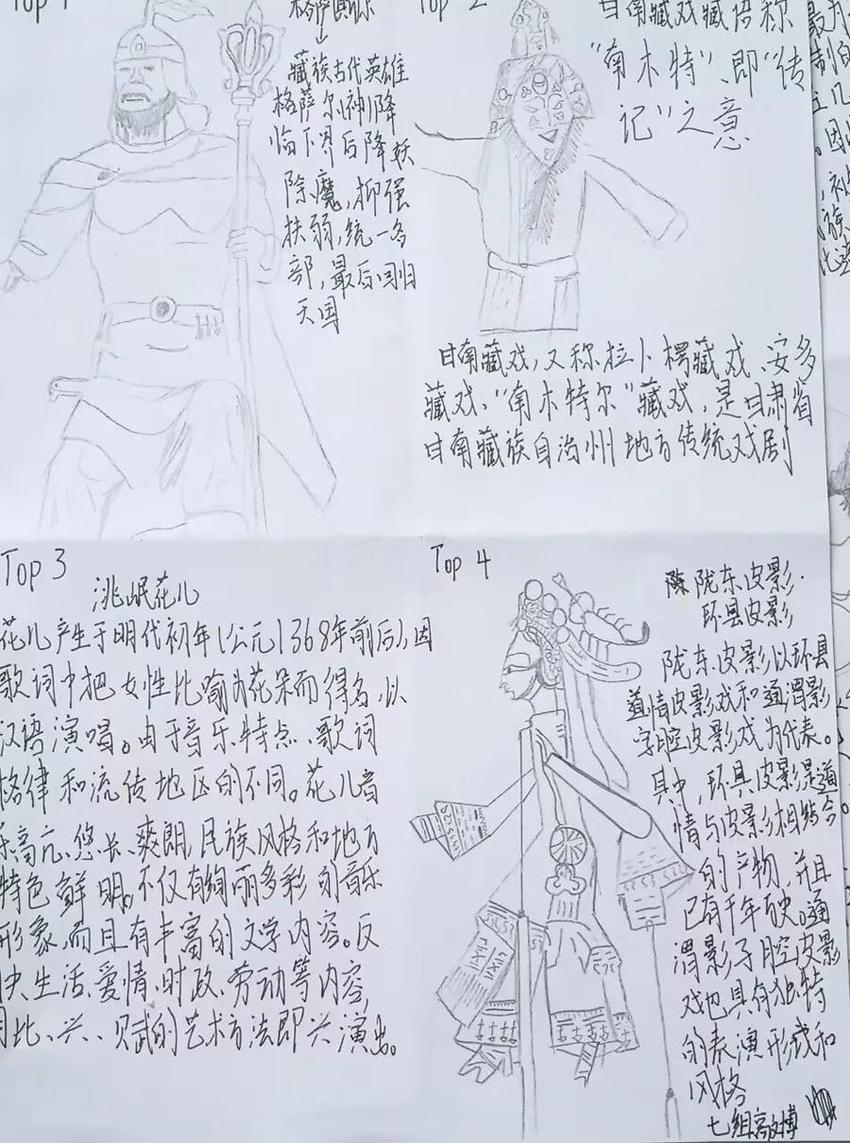 Top 1
藏族古代英雄
格萨尔(神)降
临下界后降妖
除魔,抑强
扶弱,统一各
部,最后回归
天国
Top 2
甘南藏戏藏语称
"南木特"、即"传
记"之意
甘南藏戏,又称拉卜楞藏戏、安多
藏戏、"南木特尔"藏戏,是甘肃省
甘南藏族自治州地方传统戏剧
Top 3
洮岷花儿
花儿产生于明代初年(公元1368年前后),因
歌词中把女性比喻为花朵而得名,以
汉语演唱。由于音乐特点、歌词
格律和流传地区的不同。花儿音
乐高亢、悠长、爽朗,民族风格和地方
特色鲜明。不仅有绚丽多彩的音乐
形象,而且有丰富的文学内容。反
映生活、爱情、时政、劳动等内容,
用比、兴、、赋的艺术方法即兴演出。
Top 4
陇东皮影·
环县皮影
陇东皮影以环县
道情皮影戏和通渭影
子腔皮影戏为代表。
其中,环县皮影是道
情与皮影相结合
的产物,并且
已有千年历史。通
渭影子腔皮影
戏也具有独特
的表演形式和
风格
七组高文博